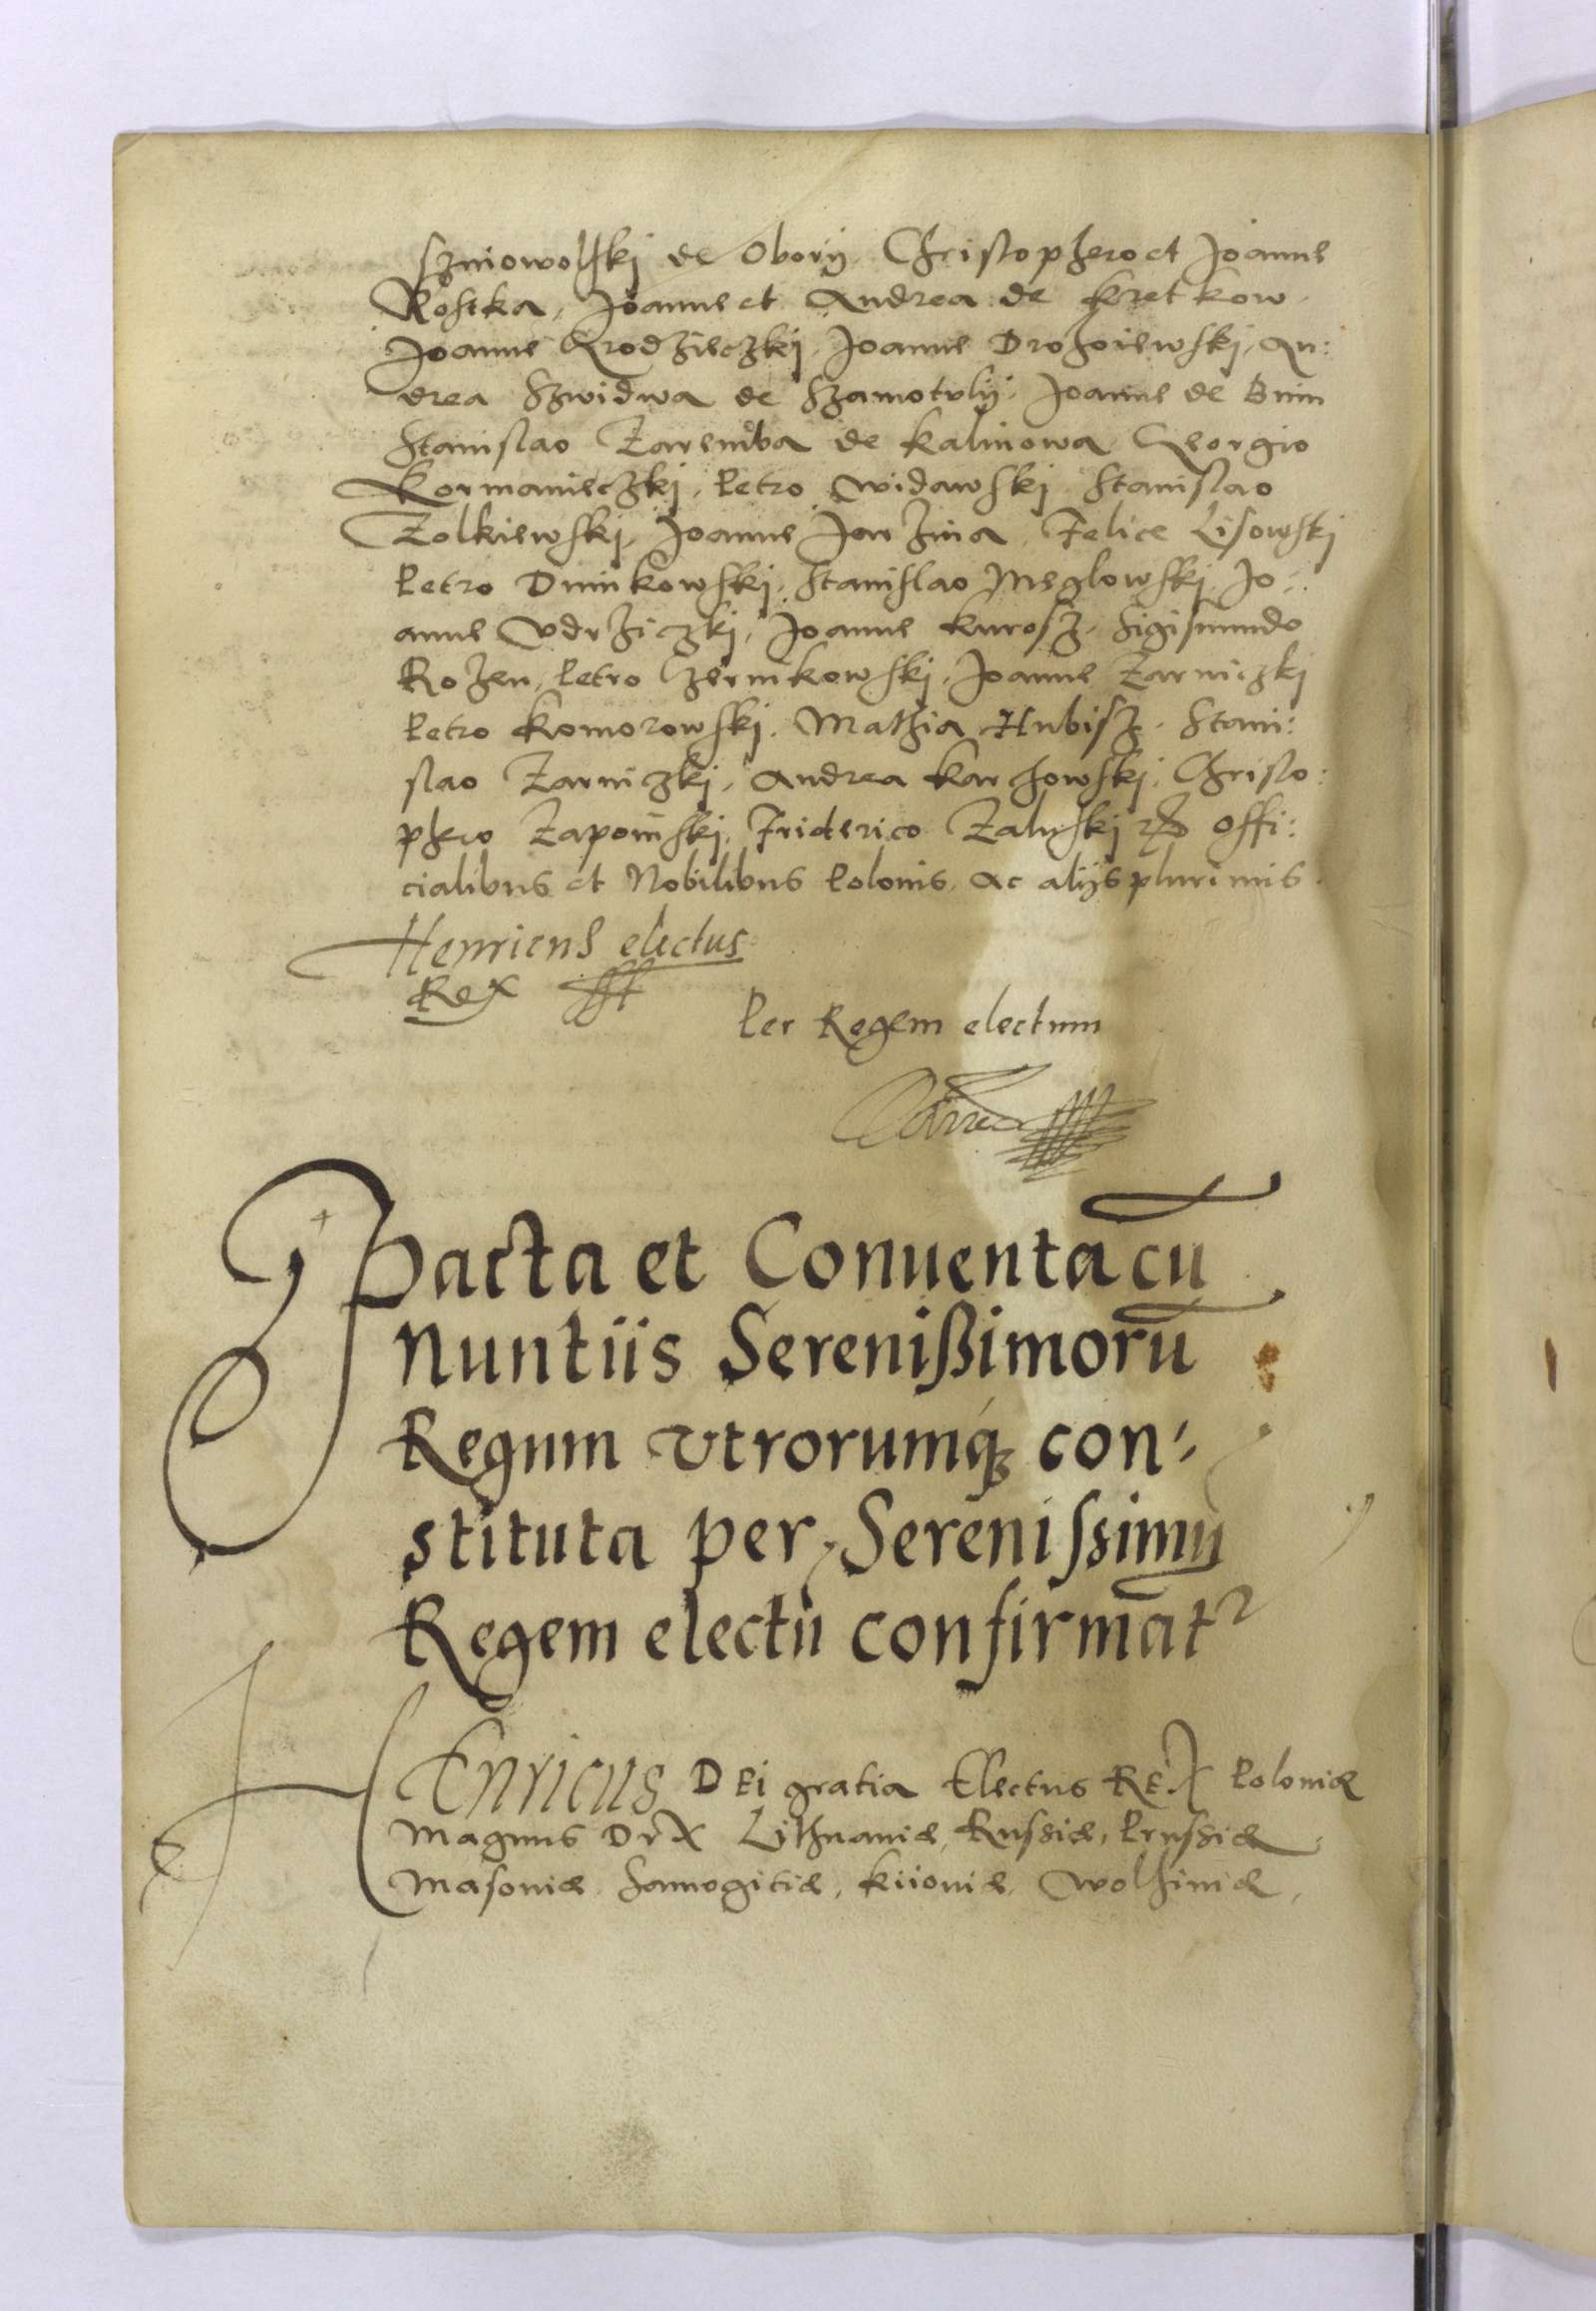 Szniowolskj de oborÿ Christophero et Joanne
Kostka, Joanne et Andrea de Kretkow.
Joanne Grodzieczkj, Joanne Drohoiewskj, An:
drea Szwidwa de Szamotvlÿ, Joanne de Bnin
Stanislao Zaremba de Kalinowa Georgio
Kormanieczkj, Petro Widawskj Stanislao
Zolkiewskj, Joanne Jarzina, Felice Lisowskj
Petro Dninkowskj, Stanislao Meglowskj, Jo:
anne Vdrziczkj, Joanne Kurosz, Sigismundo
Rozen, Petro Czernikowskj, Joanne Zarniczkj
Petro Komorowskj. Mathia Hubisz. Stani:
slao Zarniczkj, Andrea Karchowskj, Christo:
phero Zapoinskj, Friderico Zaluskj offi:
cialibus et Nobilibus Polonis, ac alijs plurimis.
Henricus electus
Rex
Per Regem electum
Pacta et Conuenta cū
Nuntiis Serenißimorū
Regum vtrorumq́ con,
stituta per Serenissimū
Regem electū confirmāt
HEnricus DEi gratia Electus REX Poloniæ
Magnus DvX Lithuaniæ, Russiæ, Prussiæ
Masoniæ Samogitiæ, Kiioniæ, Wolhiniæ,